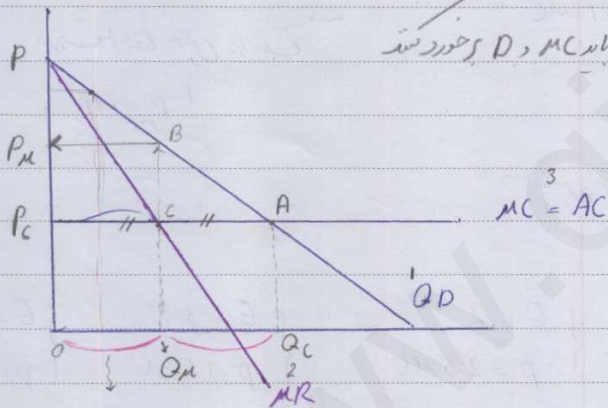 باید MC و D برخورد کنند
P
P_M
B
P_C
C
A
3
MC = AC
1
QD
0
Q_M
Q_C
2
MR